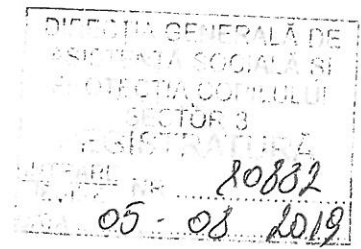 DIRECȚIA GENERALĂ DE
ASISTENȚĂ SOCIALĂ ȘI
PROTECȚIA COPILULUI
SECTOR 3
REGISTRATURĂ
INTRARE
NR.
05 - 08 2019